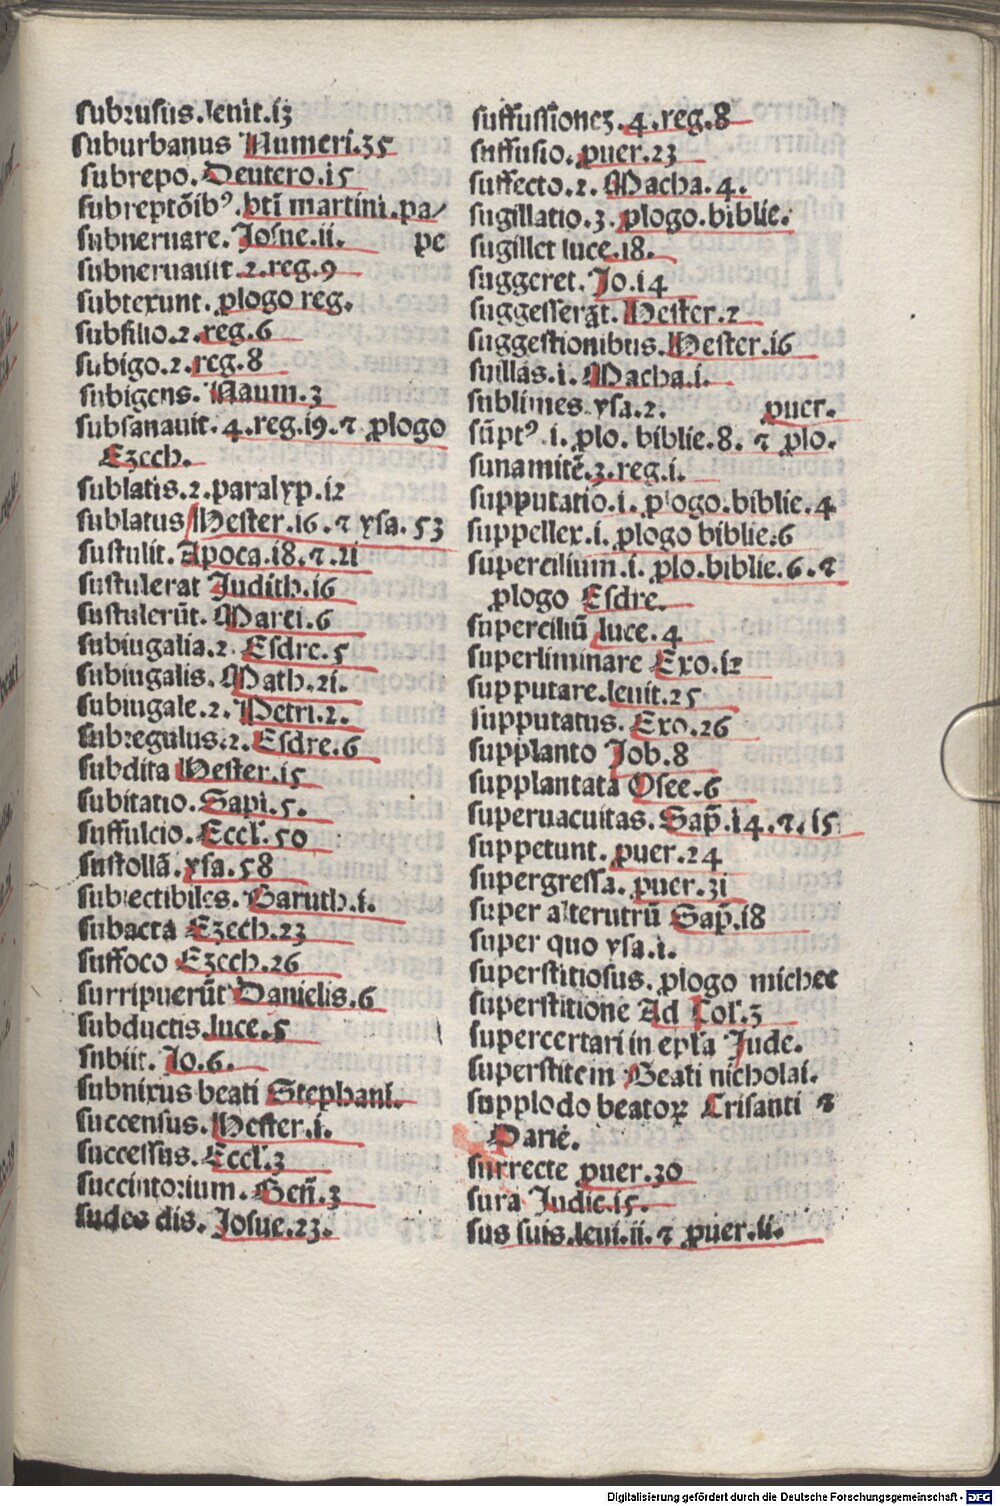 subrufus.leuit.i3
suburbanus Numeri.35
subrepo.Deutero.i5
subreptõibꝰ.bti martini.pa/
subneruare.Josue.ii. pe
subneruauit.2.reg.9
subtexunt.ꝓlogo reg.
subsilio.2.reg.6
subigo.2.reg.8
subigens.Naum.3
subsanauit.4.reg.i9.⁊ ꝓlogo
Ezech.
sublatis.2.paralyp.i2
sublatus Hester.i6.⁊ ysa.53
sustulit.Apoca.i8.⁊.2i
sustulerat Judith.i6
sustulerũt.Marci.6
subiugalia.2.Esdre.5
subiugalis.Math.2i.
subiugale.2.Petri.2.
subregulus.2.Esdre.6
subdita Hester.i5
subitatio.Sapi.5.
suffulcio.Eccl.50
sustollã.ysa.58
subiectibiles.Baruth.i.
subacta Ezech.23
suffoco Ezech.26
surripuerũt Danielis.6
subductis.luce.5
subiit.Jo.6.
subnixus beati Stephani.
succensus.Hester.i.
successus.Eccl.3
succintorium.Geñ.3
sudes dis.Josue.23.
suffussiones.4.reg.8
suffusio.ꝓuer.23
suffecto.2.Macha.4.
sugillatio.3.ꝓlogo.biblie.
sugillet luce.i8.
suggeret.Jo.i4
suggesserãt.Hester.2
suggestionibus.Hester.i6
suillas.i.Macha.i.
sublimes ysa.2. ꝓuer.
sũptꝰ.i.ꝓlo.biblie.8.⁊ ꝓlo.
sunamitẽ.3.reg.i.
supputatio.i.ꝓlogo.biblie.4
suppellex.i.ꝓlogo biblie.6
supercilium.i.ꝓlo.biblie.6.⁊
ꝓlogo Esdre.
superciliũ luce.4
superliminare Exo.i2
supputare.leuit.25
supputatus.Exo.26
supplanto Job.8
supplantata Osee.6
superuacuitas.Sap̃.i4.⁊.i5
suppetunt.ꝓuer.24
supergressa.ꝓuer.3i
super alterutrũ Sap̃.i8
super quo ysa.i.
superstitiosus.ꝓlogo michee
superstitione Ad Col.3
supercertari in epła Jude.
superstitem Beati nicholai.
supplodo beatoꝝ Crisanti ⁊
Darie.
surrecte ꝓuer.30
sura Judic.i5.
sus suis.leui.ii.⁊ ꝓuer.ii.
Digitalisierung gefördert durch die Deutsche Forschungsgemeinschaft - DFG